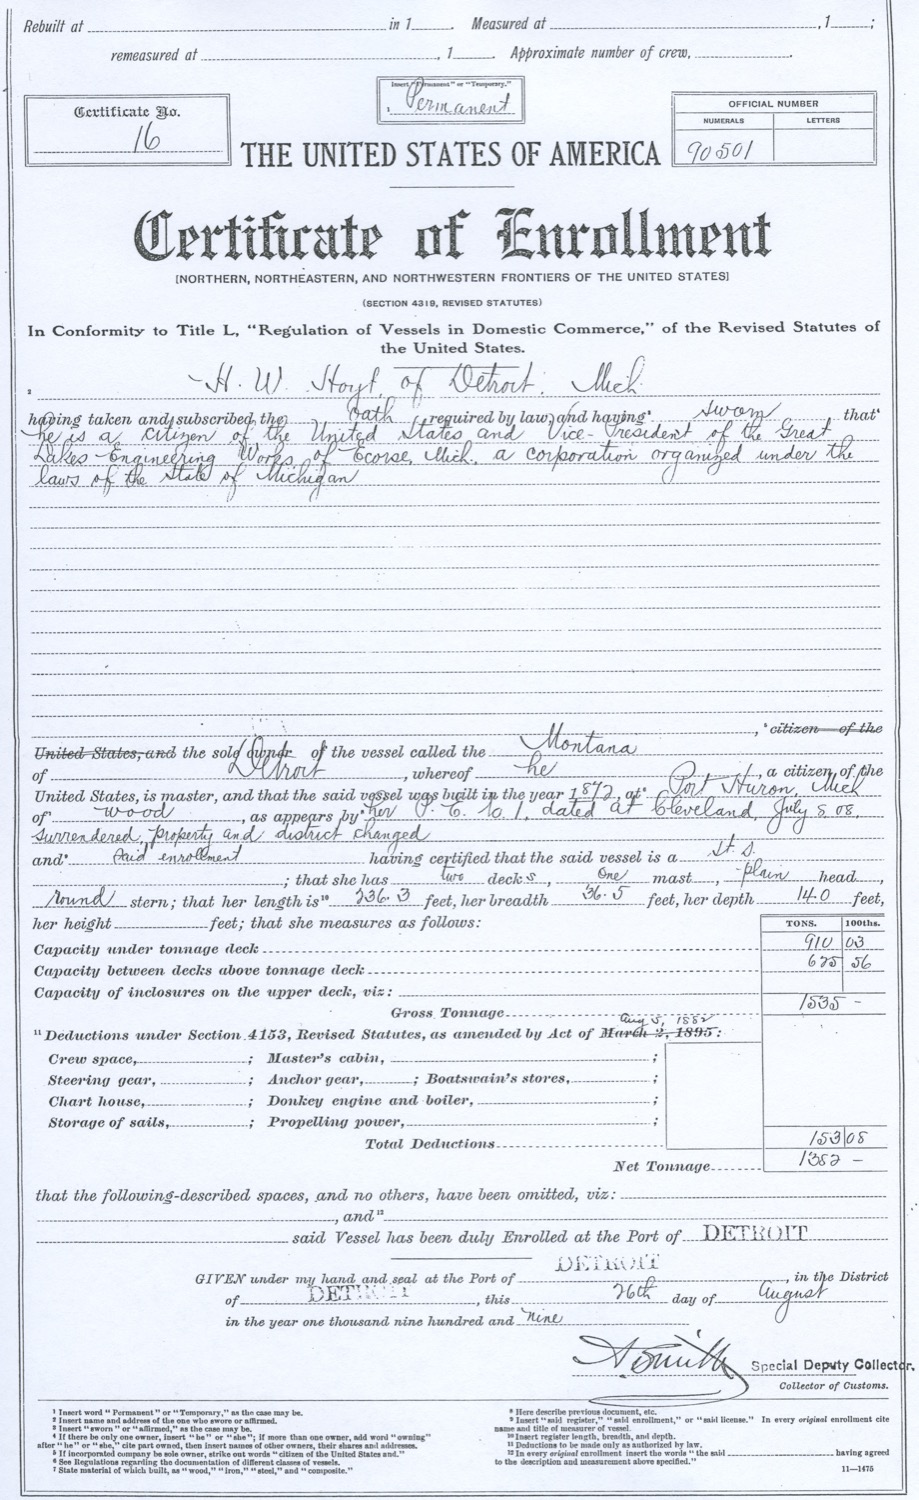 Rebuilt at in 1 . Measured at , 1 ;
remeasured at , 1 . Approximate number of crew, .
Insert "Permanent" or "Temporary."
1 Permanent
Certificate No.
16
OFFICIAL NUMBER
NUMERALS LETTERS
90501
THE UNITED STATES OF AMERICA
Certificate of Enrollment
[NORTHERN, NORTHEASTERN, AND NORTHWESTERN FRONTIERS OF THE UNITED STATES]
(SECTION 4319, REVISED STATUTES)
In Conformity to Title L, "Regulation of Vessels in Domestic Commerce," of the Revised Statutes of
the United States.
2 H. W. Hoyt, of Detroit, Mich
having taken and subscribed the oath required by law, and having 3 sworn that 4
he is a citizen of the United States and Vice-President of the Great
Lakes Engineering Works of Ecorse, Mich., a corporation organized under the
laws of the State of Michigan
, 5 citizen of the
United States, and the sole owner of the vessel called the Montana
of Detroit , whereof he , a citizen of the
United States, is master, and that the said vessel was built in the year 1872, at 6 Port Huron, Mich
of 7 wood , as appears by 8 her P. E. No. 1, dated at Cleveland, July 5 08,
surrendered, property and district changed
and 9 said enrollment having certified that the said vessel is a St. S.
; that she has two decks, one mast, plain head,
round stern; that her length is 10 236.3 feet, her breadth 36.5 feet, her depth 14.0 feet,
her height feet; that she measures as follows:
TONS. 100ths.
Capacity under tonnage deck 910 03
Capacity between decks above tonnage deck 625 56
Capacity of inclosures on the upper deck, viz:
Gross Tonnage 1535 -
Aug 5, 1882
11 Deductions under Section 4153, Revised Statutes, as amended by Act of March 2, 1895:
Crew space, ; Master's cabin, ;
Steering gear, ; Anchor gear, ; Boatswain's stores, ;
Chart house, ; Donkey engine and boiler, ;
Storage of sails, ; Propelling power, ;
Total Deductions 153 08
Net Tonnage 1382 -
that the following-described spaces, and no others, have been omitted, viz:
, and 12
said Vessel has been duly Enrolled at the Port of DETROIT
GIVEN under my hand and seal at the Port of DETROIT , in the District
of DETROIT , this 26th day of August
in the year one thousand nine hundred and nine
Smith Special Deputy Collector.
Collector of Customs.
1 Insert word "Permanent" or "Temporary," as the case may be.
2 Insert name and address of the one who swore or affirmed.
3 Insert "sworn" or "affirmed," as the case may be.
4 If there be only one owner, insert "he" or "she"; if more than one owner, add word "owning"
after "he" or "she," cite part owned, then insert names of other owners, their shares and addresses.
5 If incorporated company be sole owner, strike out words "citizen of the United States and."
6 See Regulations regarding the documentation of different classes of vessels.
7 State material of which built, as "wood," "iron," "steel," and "composite."
8 Here describe previous document, etc.
9 Insert "said register," "said enrollment," or "said license." In every original enrollment cite
name and title of measurer of vessel.
10 Insert register length, breadth, and depth.
11 Deductions to be made only as authorized by law.
12 In every original enrollment insert the words "the said having agreed
to the description and measurement above specified."
11—1475